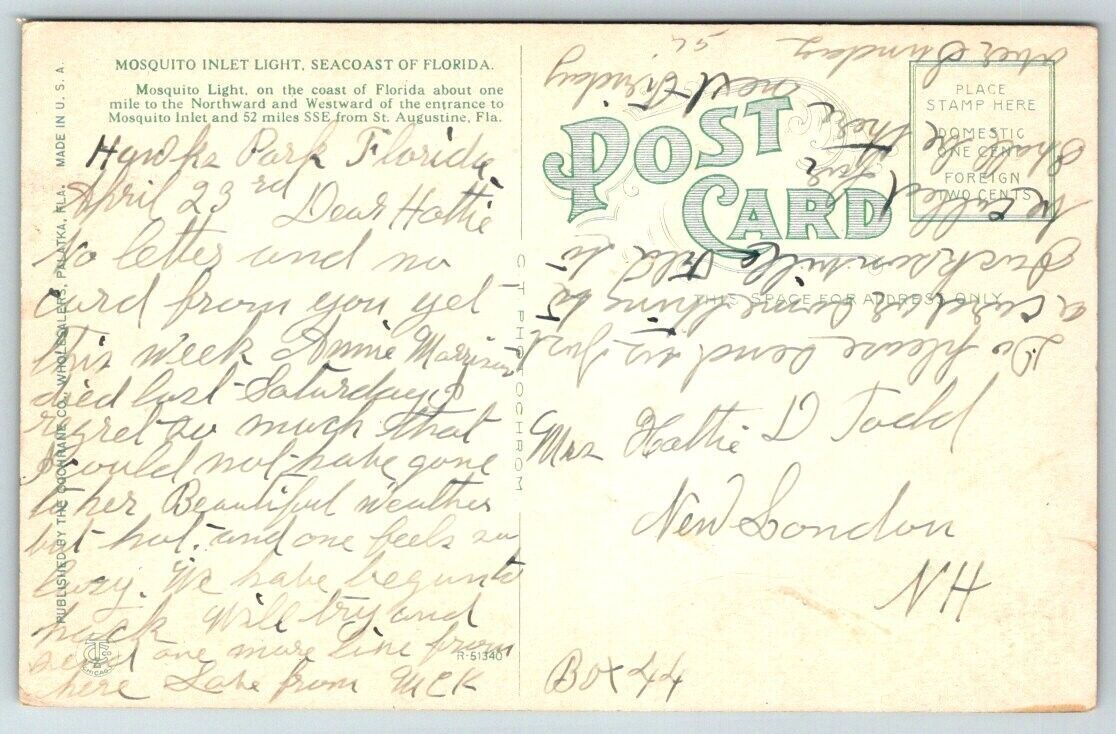 MOSQUITO INLET LIGHT, SEACOAST OF FLORIDA.
Mosquito Light, on the coast of Florida about one
mile to the Northward and Westward of the entrance to
Mosquito Inlet and 52 miles SSE from St. Augustine, Fla.
Hawks Park Florida
April 23rd Dear Hattie
No letter and no
card from you yet
this week Annie Morrison
died last Saturday I
regret so much that
I could not have gone
to her Beautiful weather
but hot, and one feels so
lazy. We have begun to
pack Will try and
send one more line from
here Love from MCK
PUBLISHED BY THE COCHRANE CO., WHOLESALERS, PALATKA, FLA. MADE IN U. S. A.
C T PHOTOCHROM
R-51340
POST CARD
THIS SPACE FOR ADDRESS ONLY
PLACE
STAMP HERE
DOMESTIC
ONE CENT
FOREIGN
TWO CENTS
Mrs Hattie D Todd
New London
NH
Box 44
Do please send us just
a card or something to
Jacksonville Fla to
be called for
Shall be there
next Friday
over Sunday